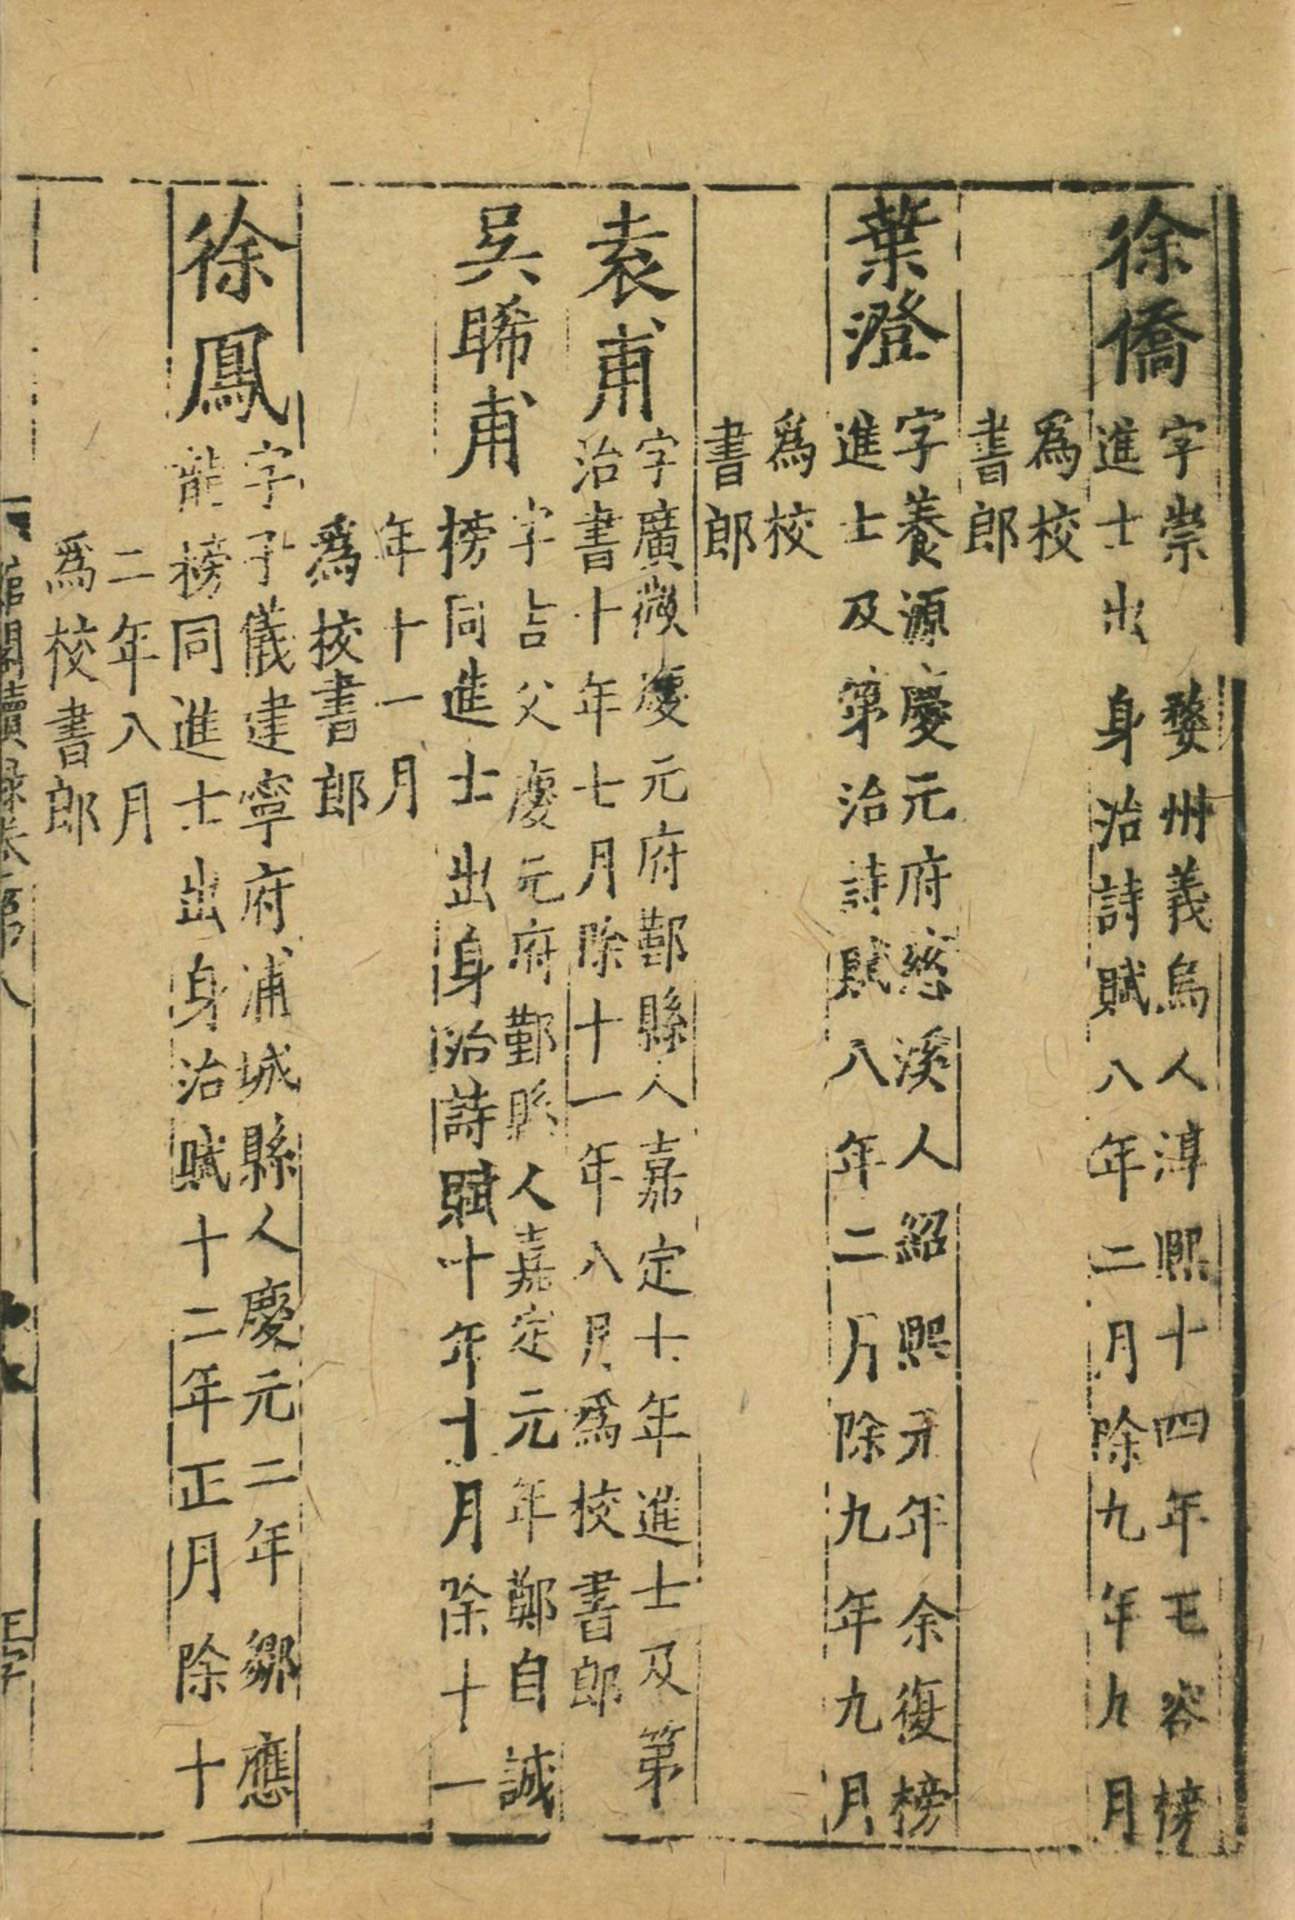 徐僑字崇 婺州義烏人淳熙十四年王容榜
進士出 身治詩賦八年二月除九年九月
爲校
書郎
葉澄字養源慶元府慈溪人紹熙元年余復榜
進士及第治詩賦八年二月除九年九月
爲校
書郎
袁甫字廣微慶元府鄞縣人嘉定十年進士及第
治書十年七月除十一年八月爲校書郎
吳晞甫字吉父慶元府鄞縣人嘉定元年鄭自誠
榜同進士出身治詩賦十年十月除十一
年十一月
爲校書郎
徐鳳字子儀建寧府浦城縣人慶元二年鄒應
龍榜同進士出身治賦十二年正月除十
二年八月
爲校書郎
館閣續録卷第八